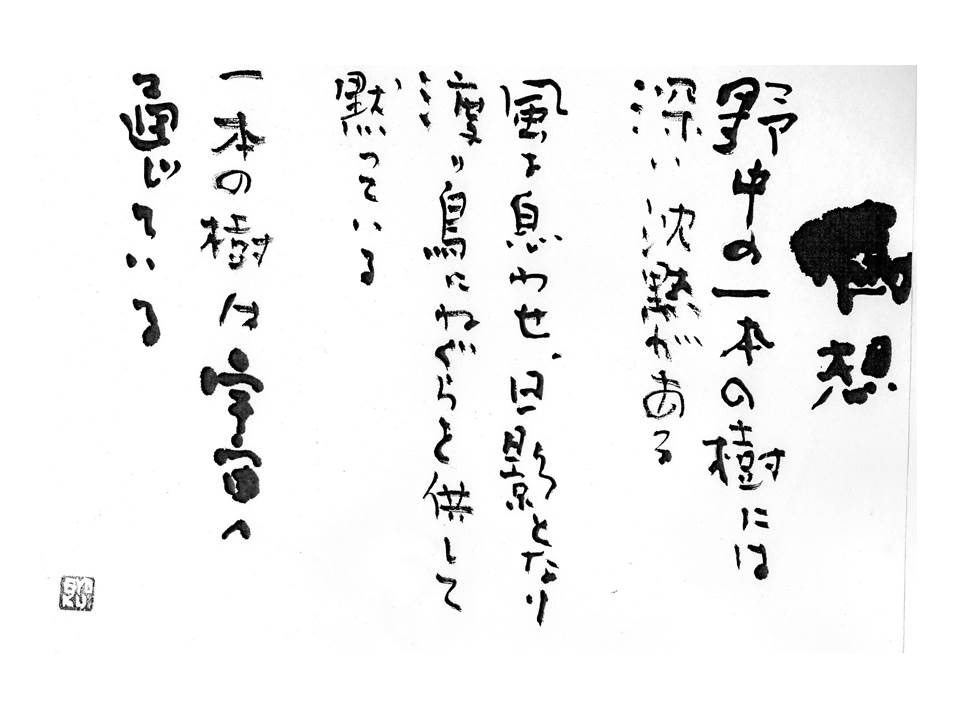 想
野中の一本の樹には
深い沈黙がある
風を息わせ、日影となり
渡り鳥にねぐらを供して
黙っている
一本の樹は宇宙へ
通じている